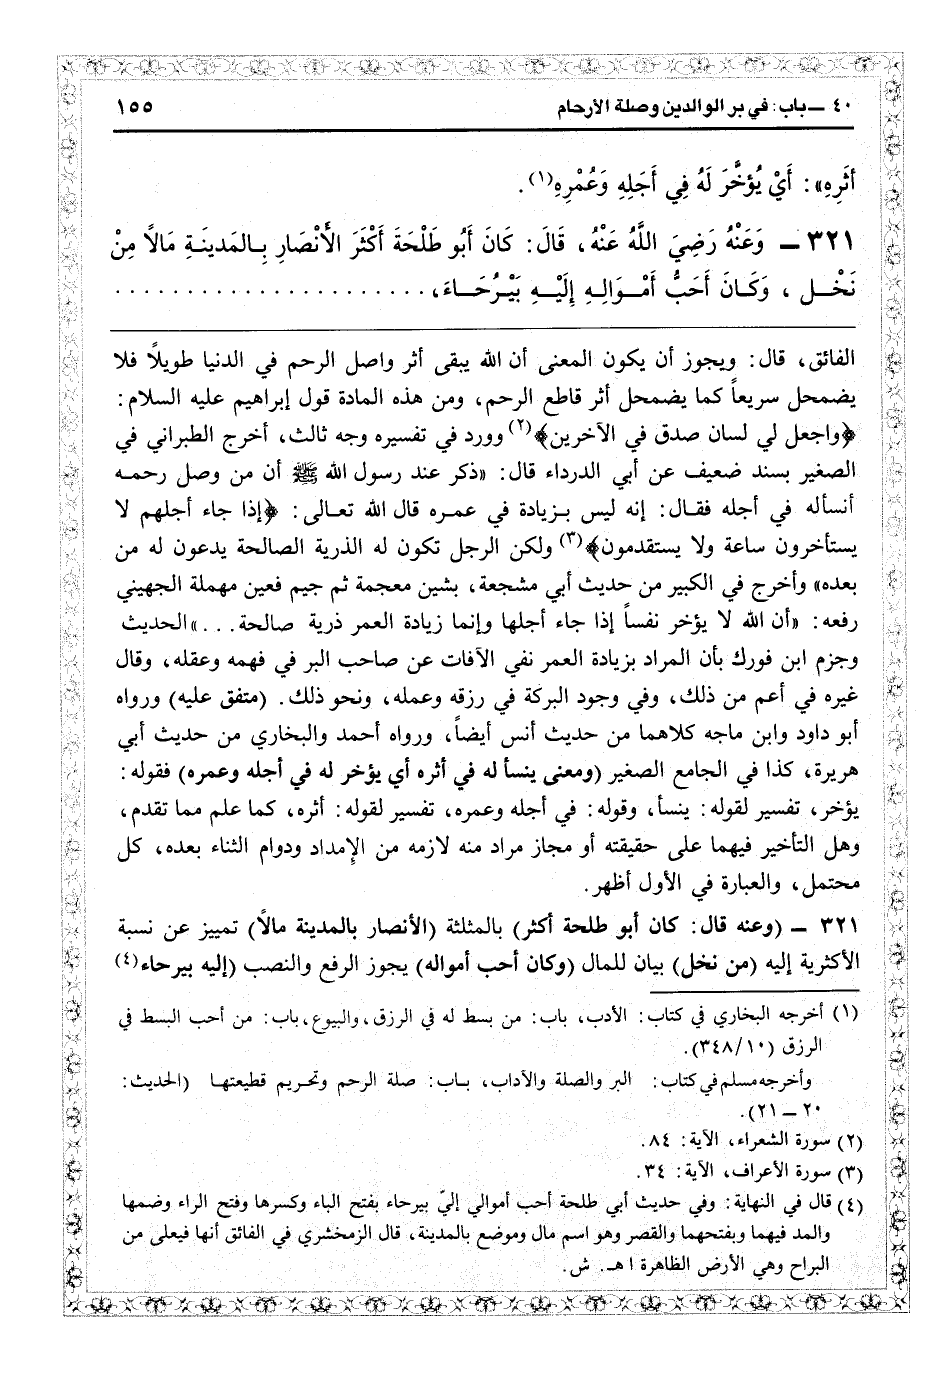 ٤٠ ــ باب: في بر الوالدين وصلة الأرحام ١٥٥
أثَرِهِ»: أَيْ يُؤخَّرَ لَهُ فِي أَجَلِهِ وَعُمْرِهِ(١).
٣٢١ ــ وَعَنْهُ رَضِيَ اللَّهُ عَنْهُ، قَالَ: كَانَ أَبُو طَلْحَةَ أَكْثَرَ الأَنْصَارِ بِالمَدينَةِ مَالاً مِنْ
نَخْلٍ، وَكَانَ أَحَبُّ أَمْوَالِهِ إِلَيْهِ بَيْرُحَاءَ، . . . . . . . . . . . . . . . . . . . . . .
الفائق، قال: ويجوز أن يكون المعنى أن الله يبقى أثر واصل الرحم في الدنيا طويلاً فلا
يضمحل سريعاً كما يضمحل أثر قاطع الرحم، ومن هذه المادة قول إبراهيم عليه السلام:
﴿واجعل لي لسان صدق في الآخرين﴾(٢) وورد في تفسيره وجه ثالث، أخرج الطبراني في
الصغير بسند ضعيف عن أبي الدرداء قال: «ذكر عند رسول الله ﷺ أن من وصل رحمه
أنسأله في أجله فقال: إنه ليس بزيادة في عمره قال الله تعالى: ﴿إذا جاء أجلهم لا
يستأخرون ساعة ولا يستقدمون﴾(٣) ولكن الرجل تكون له الذرية الصالحة يدعون له من
بعده» وأخرج في الكبير من حديث أبي مشجعة، بشين معجمة ثم جيم فعين مهملة الجهيني
رفعه: «أن الله لا يؤخر نفساً إذا جاء أجلها وإنما زيادة العمر ذرية صالحة...» الحديث
وجزم ابن فورك بأن المراد بزيادة العمر نفي الآفات عن صاحب البر في فهمه وعقله، وقال
غيره في أعم من ذلك، وفي وجود البركة في رزقه وعمله، ونحو ذلك. (متفق عليه) ورواه
أبو داود وابن ماجه كلاهما من حديث أنس أيضاً، ورواه أحمد والبخاري من حديث أبي
هريرة، كذا في الجامع الصغير (ومعنى ينسأ له في أثره أي يؤخر له في أجله وعمره) فقوله:
يؤخر، تفسير لقوله: ينسأ، وقوله: في أجله وعمره، تفسير لقوله: أثره، كما علم مما تقدم،
وهل التأخير فيهما على حقيقته أو مجاز مراد منه لازمه من الإمداد ودوام الثناء بعده، كل
محتمل، والعبارة في الأول أظهر.
٣٢١ ــ (وعنه قال: كان أبو طلحة أكثر) بالمثلثة (الأنصار بالمدينة مالاً) تمييز عن نسبة
الأكثرية إليه (من نخل) بيان للمال (وكان أحب أمواله) يجوز الرفع والنصب (إليه بيرحاء(٤)
(١) أخرجه البخاري في كتاب: الأدب، باب: من بسط له في الرزق، والبيوع، باب: من أحب البسط في
الرزق (٣٤٨/١٠).
وأخرجه مسلم في كتاب: البر والصلة والآداب، باب: صلة الرحم وتحريم قطيعتها (الحديث:
٢٠ ــ ٢١).
(٢) سورة الشعراء، الآية: ٨٤.
(٣) سورة الأعراف، الآية: ٣٤.
(٤) قال في النهاية: وفي حديث أبي طلحة أحب أموالي إليّ بيرحاء بفتح الباء وكسرها وفتح الراء وضمها
والمد فيهما وبفتحهما والقصر وهو اسم مال وموضع بالمدينة، قال الزمخشري في الفائق أنها فيعلى من
البراح وهي الأرض الظاهرة ا هـ. ش.